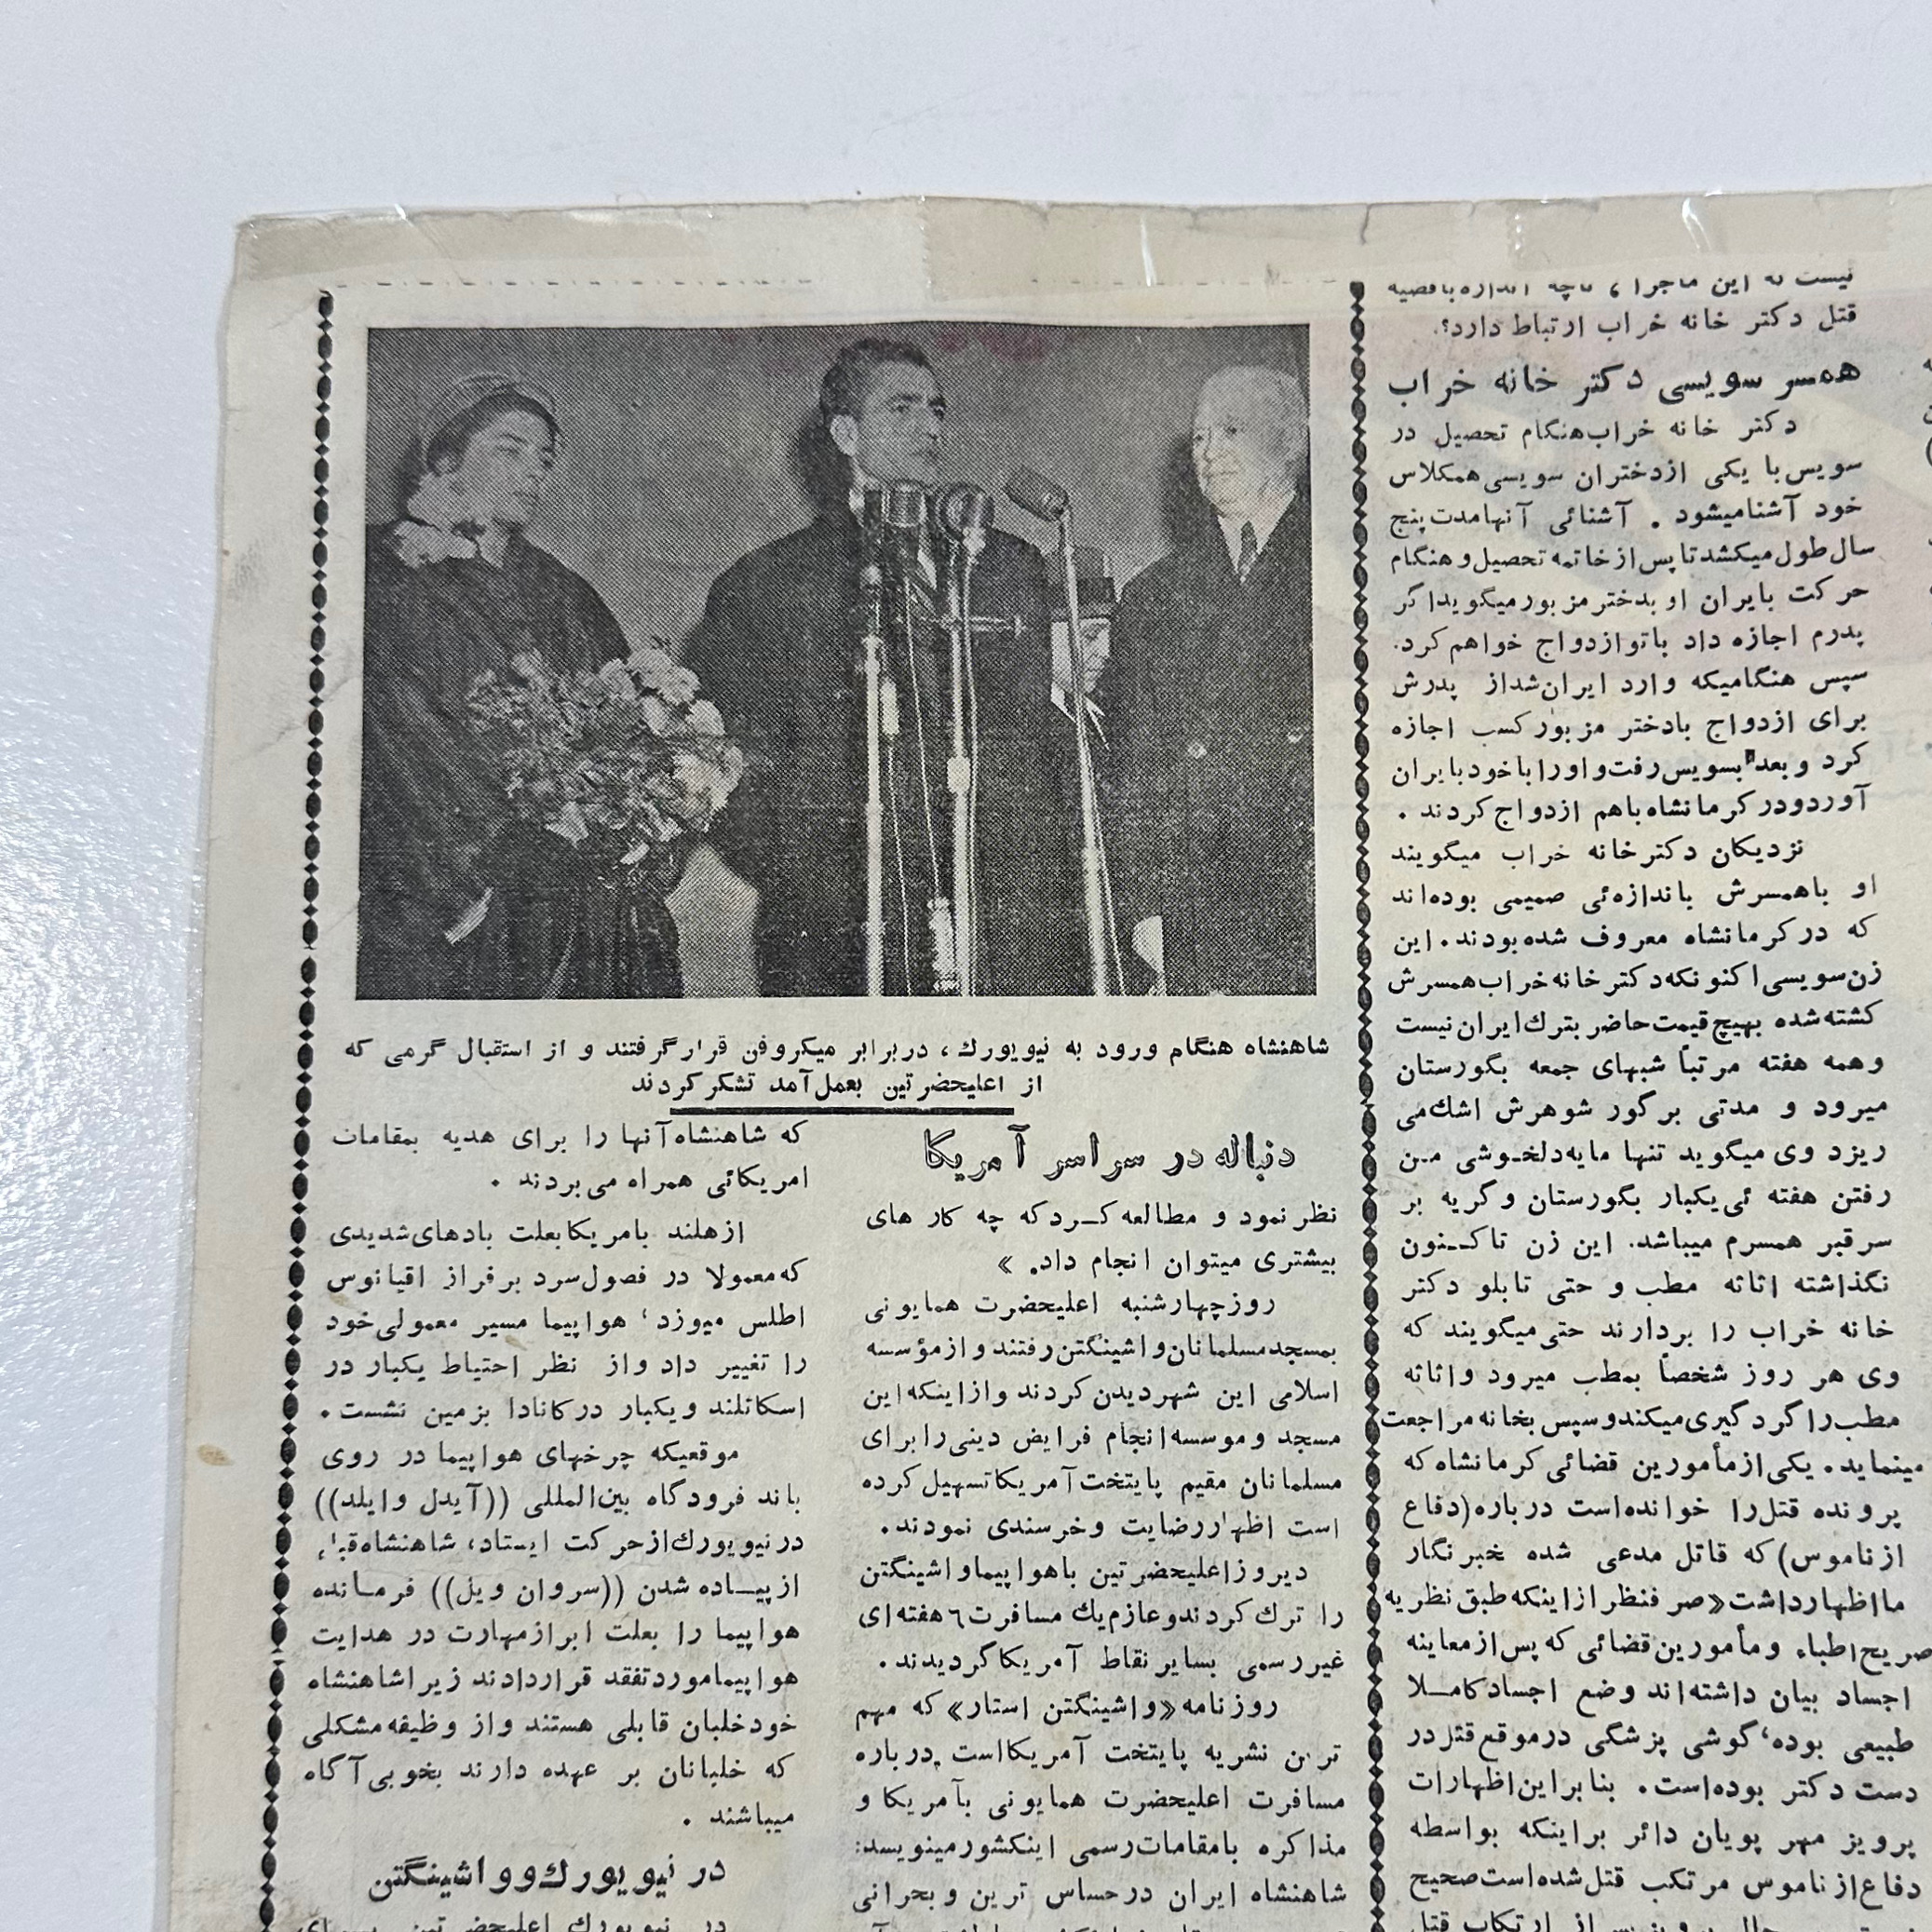 نیست که این ماجرا ، تاچه اندازه باقضیه
قتل دکتر خانه خراب ارتباط دارد؟.
همسر سویسی دکتر خانه خراب
دکتر خانه خراب هنگام تحصیل در
سویس با یکی ازدختران سویسی همکلاس
خود آشنامیشود . آشنائی آنهامدت پنج
سال طول میکشد تا پس از خاتمه تحصیل و هنگام
حرکت بایران او بدختر مزبور میگوید اگر
پدرم اجازه داد باتو ازدواج خواهم کرد.
سپس هنگامیکه وارد ایران شداز پدرش
برای ازدواج بادختر مزبور کسب اجازه
کرد و بعد بسویس رفت و اورا باخود بایران
آورد و در کرمانشاه باهم ازدواج کردند .
نزدیکان دکتر خانه خراب میگویند
او باهمسرش باندازه‌ئی صمیمی بوده‌اند
که در کرمانشاه معروف شده بودند. این
زن سویسی اکنونکه دکتر خانه خراب همسرش
کشته شده بهیچ قیمت حاضر بترك ایران نیست
وهمه هفته مرتباً شبهای جمعه بگورستان
میرود و مدتی بر گور شوهرش اشك می
ریزد وی میگوید تنها مایه دلخـوشی مـن
رفتن هفته ئی یکبار بگورستان و گریه بر
سر قبر همسرم میباشد. این زن تاکـنون
نگذاشته اثاثه مطب و حتی تابلو دکتر
خانه خراب را بردارند حتی میگویند که
وی هر روز شخصاً بمطب میرود و اثاثه
مطب را گردگیری میکند و سپس بخانه مراجعت
مینماید. یکی از مأمورین قضائی کرمانشاه که
پرونده قتل را خوانده‌است درباره (دفاع
از ناموس) که قاتل مدعی شده خبر نگار
ما اظهار داشت «صر فنظر از اینکه طبق نظریه
صریح اطباء و مأمورین قضائی که پس از معاینه
اجساد بیان داشته‌اند وضع اجساد کامـلا
طبیعی بوده، گوشی پزشگی در موقع قتل در
دست دکتر بوده‌است. بنابراین اظهارات
پرویز مهر پویان دائر براینکه بواسطه
دفاع از ناموس مرتکب قتل شده است صحیح
شاهنشاه هنگام ورود به نیویورك ، دربرابر میکروفن قرار گرفتند و از استقبال گرمی که
از اعلیحضرتین بعمل آمد تشکر کردند
دنباله در سراسر آمریکا
نظر نمود و مطالعه کـرد که چه کار های
بیشتری میتوان انجام داد. »
روز چهارشنبه اعلیحضرت همایونی
بمسجد مسلمانان واشینگتن رفتند و از مؤسسه
اسلامی این شهر دیدن کردند و از اینکه این
مسجد و موسسه انجام فرایض دینی را برای
مسلمانان مقیم پایتخت آمریکا تسهیل کرده
است اظهار رضایت و خرسندی نمودند.
دیروز اعلیحضرتین باهواپیما واشینگتن
را ترك کردند و عازم یك مسافرت ٦ هفته‌ای
غیر رسمی بسایر نقاط آمریکا گردیدند.
روزنامه «واشینگتن استار» که مهم
ترین نشریه پایتخت آمریکااست درباره
مسافرت اعلیحضرت همایونی بآمریکا و
مذاکره بامقامات رسمی اینکشور مینویسد:
شاهنشاه ایران در حساس ترین و بحرانی
که شاهنشاه آنها را برای هدیه بمقامات
امریکائی همراه می‌بردند .
از هلند بامریکا بعلت بادهای شدیدی
که معمولا در فصول سرد بر فراز اقیانوس
اطلس میوزد، هواپیما مسیر معمولی خود
را تغییر داد و از نظر احتیاط یکبار در
اسکاتلند و یکبار در کانادا بزمین نشست.
موقعیکه چرخهای هواپیما در روی
باند فرودگاه بین‌المللی ((آیدل وایلد))
در نیویورك از حرکت ایستاد، شاهنشاه قبل
از پیـاده شدن ((سروان ویل)) فرمـانده
هواپیما را بعلت ابراز مهارت در هدایت
هواپیما مورد تفقد قرار دادند زیرا شاهنشاه
خود خلبان قابلی هستند و از وظیفه مشکلی
که خلبانان بر عهده دارند بخوبی آگاه
میباشند .
در نیویورك و واشینگتن
در نیویورك اعلیحضرتین